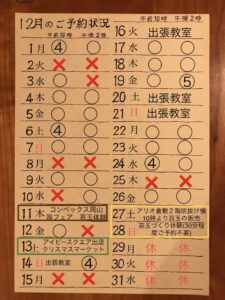 12月のご予約状況
午前10時 午後2時
1 月 ④ ○
2 火 × ×
3 水 ○ ×
4 木 ○ ○
5 金 ○ ○
6 土 ④ ○
7 日 ○ ○
8 月 × ×
9 火 × ×
10 水 ○ ×
11 木 コンベックス岡山
苔フェア 苔玉体験
12 金 ○ ○
13 土 アイビースクエア出店
クリスマスマーケット
14 日 出張教室 ④
15 月 × ×
午前10時 午後2時
16 火 出張教室
17 水 ○ ○
18 木 ○ ○
19 金 ○ ⑤
20 土 出張教室
21 日 出張教室
22 月 ○ ○
23 火 ○ ○
24 水 × ○
25 木 × ×
26 金 ○ ○
27 土 アリオ倉敷2階吹抜け横
10時より苔玉の販売
28 日 苔玉づくり体験(30分程
度ご予約不要)
29 月 休 休
30 火 休 休
31 水 休 休